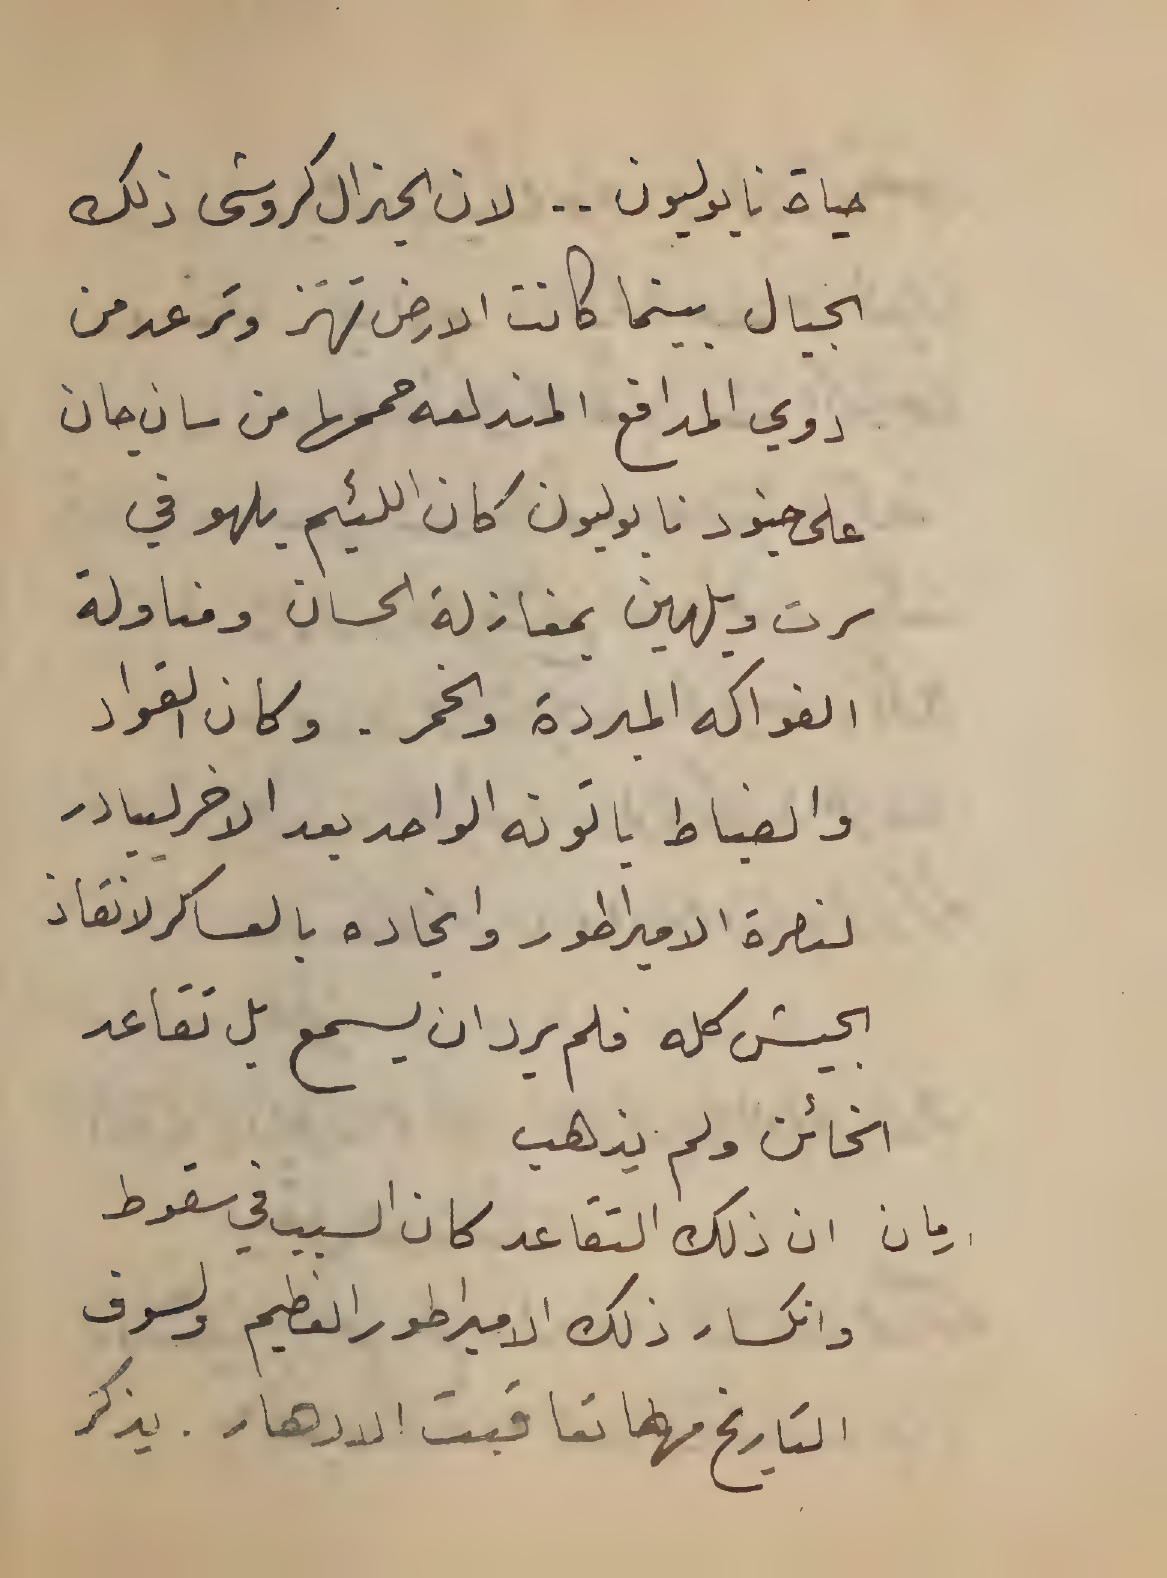 حياة نابوليون .. لان الجنرال كروشى ذلك
الجبال بينما كانت الارض تهتز وترعد من
دوي المدافع المندلعه حممها من سان جان
على جنود نابوليون كان اللئيم يلهو في
سرت ويلهين بمغازلة الحسان ومناولة
الفواكه المبردة والخمر . وكان القواد
والضباط ياتونه الواحد بعد الاخر ليبادر
لنصرة الامبراطور وانجاده بالعساكر لانقاذ
الجيش كله فلم يرد ان يسمع بل تقاعد
الخائن ولم يذهب
ان ذلك التقاعد كان السبب في سقوط
وانكسار ذلك الامبراطور العظيم ولسوف
التاريخ مهما تعاقبت الادهار . يذكر